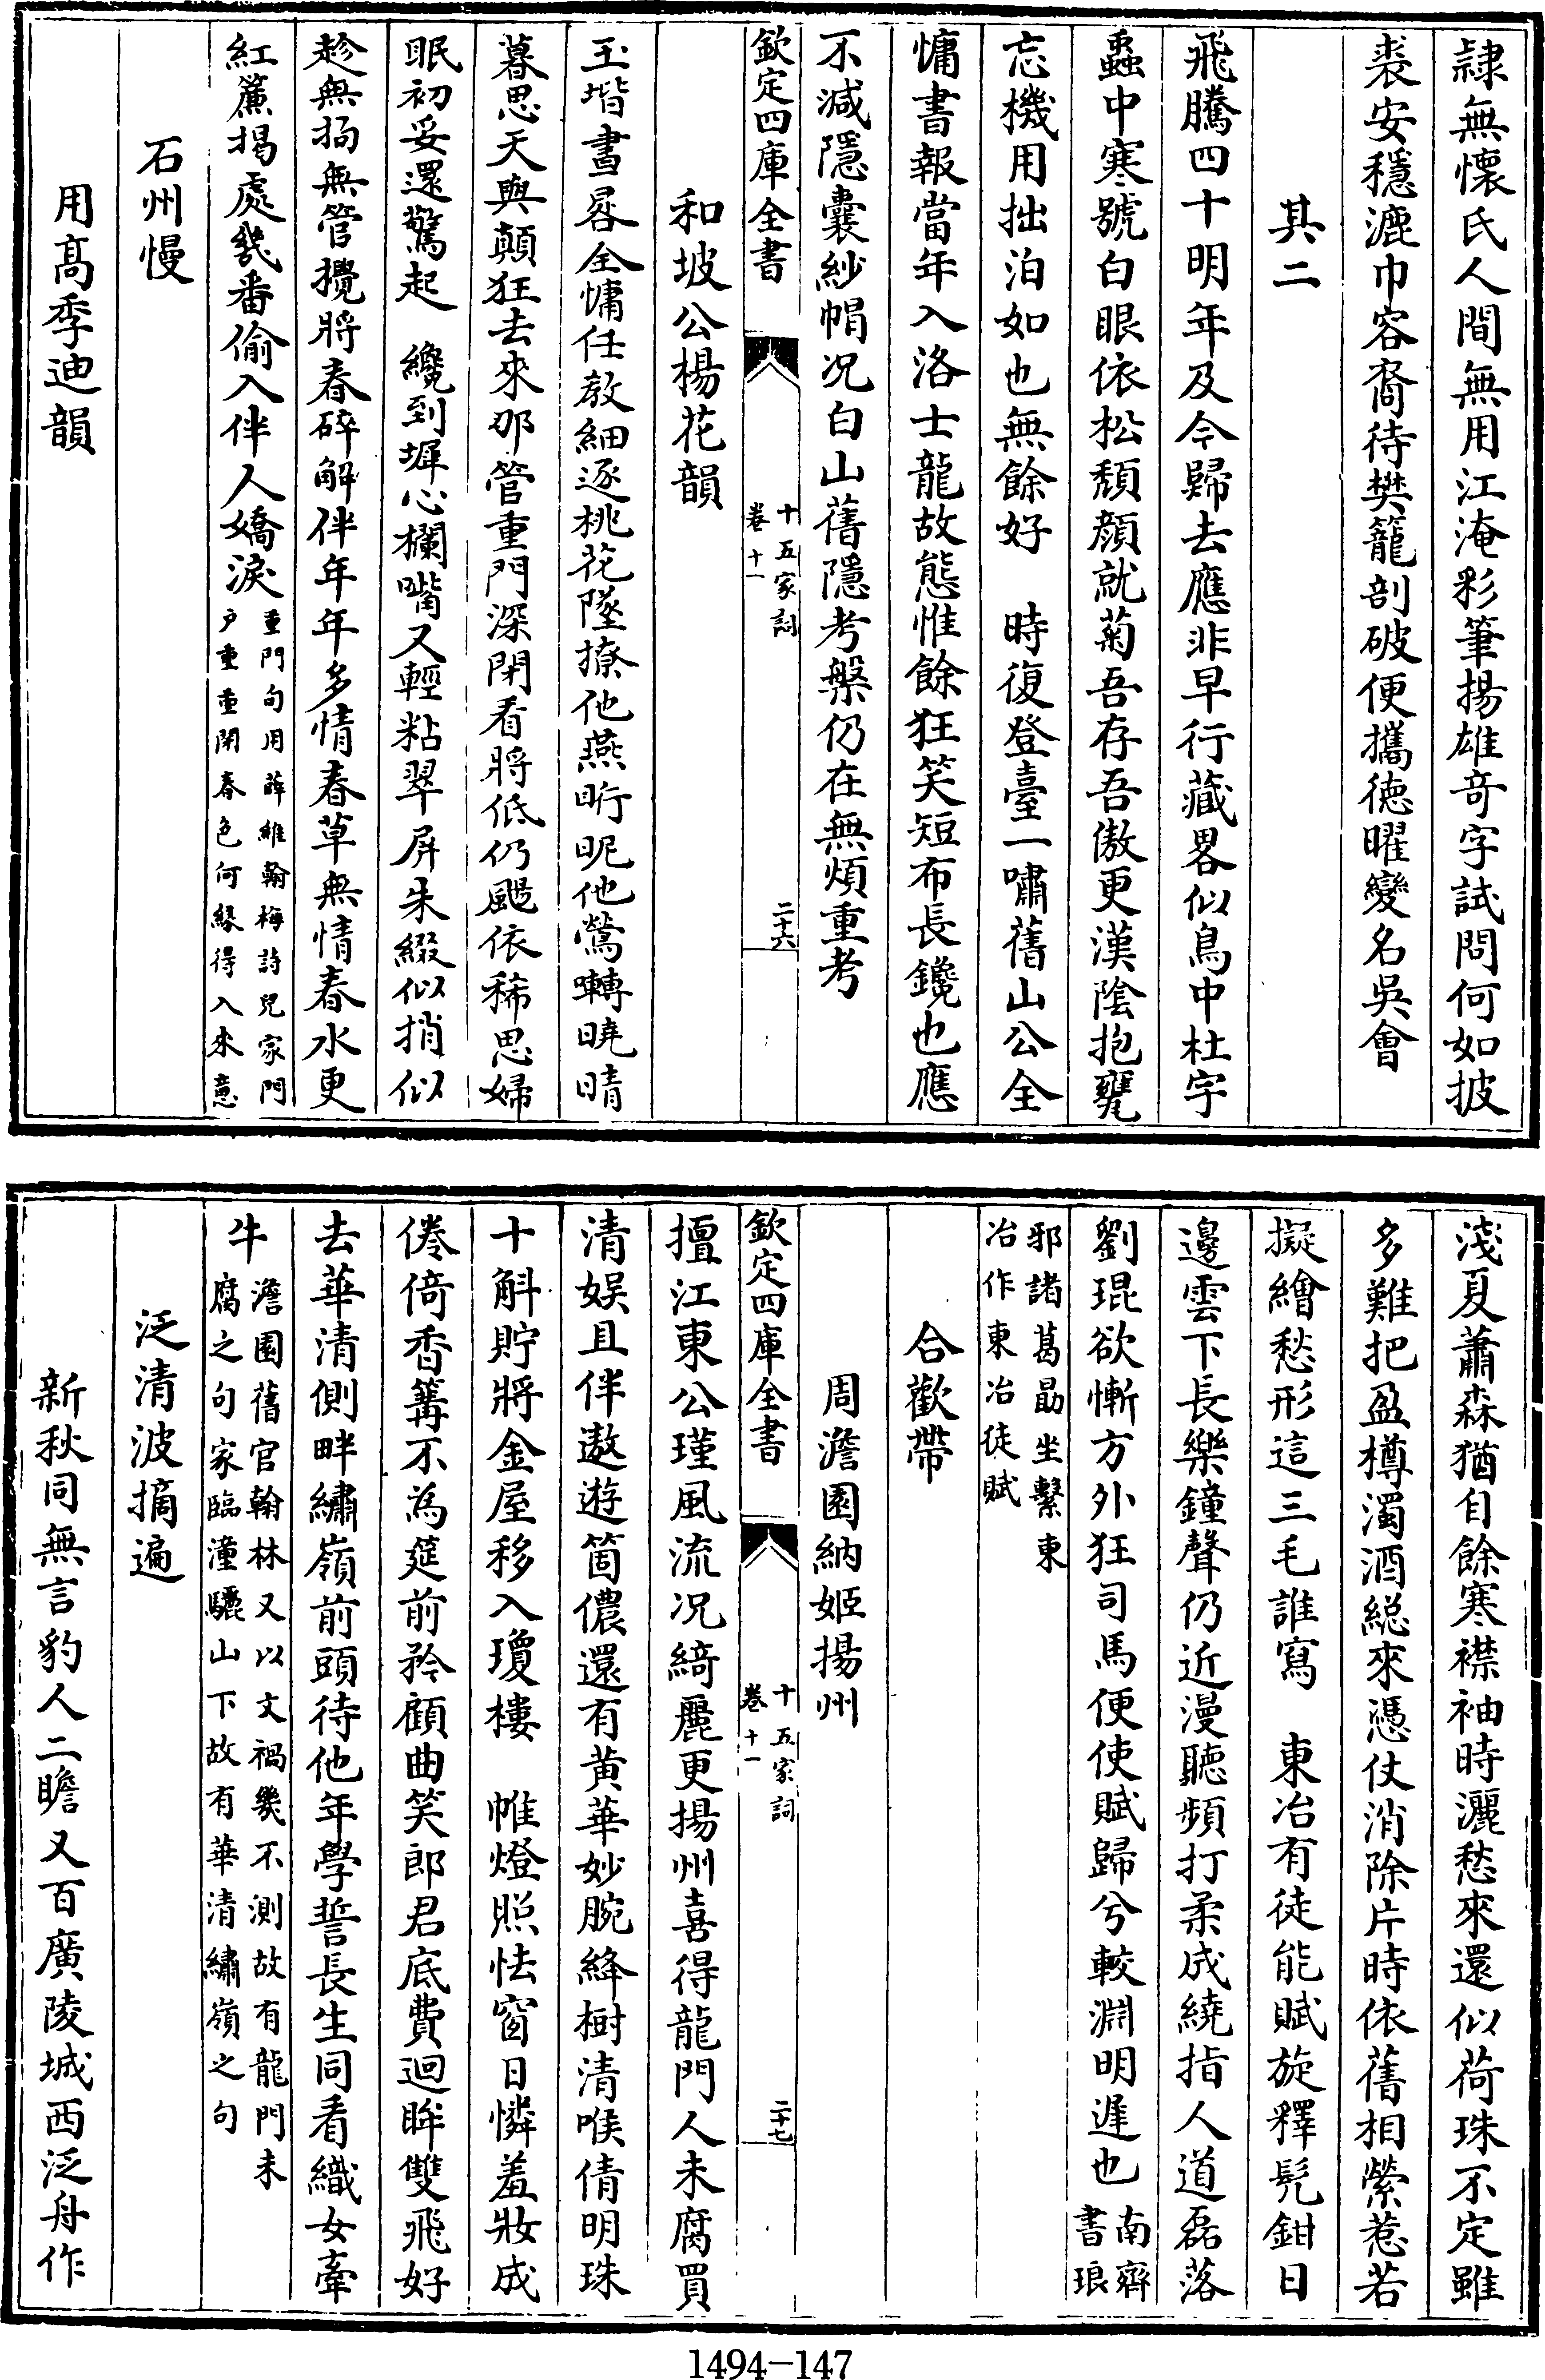 隷無懷氏人間無用江淹彩筆揚雄奇字試問何如披
裘安穩漉巾容裔待樊籠剖破便攜德曜變名吳會
其二
飛騰四十明年及今歸去應非早行藏畧似鳥中杜宇
蟲中寒號白眼依松頽顏就菊吾存吾傲更漢陰抱甕
忘機用拙泊如也無餘好　時復登臺一嘯舊山公全
慵書報當年入洛士龍故態惟餘狂笑短布長鑱也應
不減隱囊紗帽况白山舊隱考槃仍在無煩重考
欽定四庫全書
十五家詞
卷十一
二十六
和坡公楊花韻
玉堦晝晷全慵任教細逐桃花墜撩他燕昕昵他鶯囀曉晴
暮思天與顛狂去來那管重門深閉看將低仍颺依稀思婦
眠初妥還驚起　纔到墀心欄嘴又輕粘翠屏朱綴似捎似
趁無揚無管攪將春碎解伴年年多情春草無情春水更
紅簾揭處幾番偷入伴人嬌淚
重門句用薛維翰梅詩兒家門
户重重閉春色何縁得入來意
石州慢
用髙季迪韻
淺夏蕭森猶自餘寒襟袖時灑愁來還似荷珠不定雖
多難把盈樽濁酒總來憑仗消除片時依舊相縈惹若
擬繪愁形這三毛誰寫　東冶有徒能賦旋釋髠鉗日
邊雲下長樂鐘聲仍近漫聽頻打柔成繞指人道磊落
劉琨欲慚方外狂司馬便使賦歸兮較淵明遲也
南齊
書琅
邪諸葛勗坐繫東
冶作東冶徒賦
合歡帶
周澹園納姬揚州
擅江東公瑾風流况綺麗更揚州喜得龍門人未腐買
清娱且伴遨遊箇儂還有黄華妙腕絳樹清喉倩明珠
十斛貯將金屋移入瓊樓　帷燈照怯窗日憐羞妝成
倦倚香篝不為筵前矜顧曲笑郎君底費迴眸雙飛好
去華清側畔繡嶺前頭待他年學誓長生同看織女牽
牛
澹園舊官翰林又以文禍幾不測故有龍門未
腐之句家臨潼驪山下故有華清繡嶺之句
泛清波摘遍
新秋同無言豹人二瞻又百廣陵城西泛舟作
欽定四庫全書
十五家詞
卷十一
二十七
1494-147